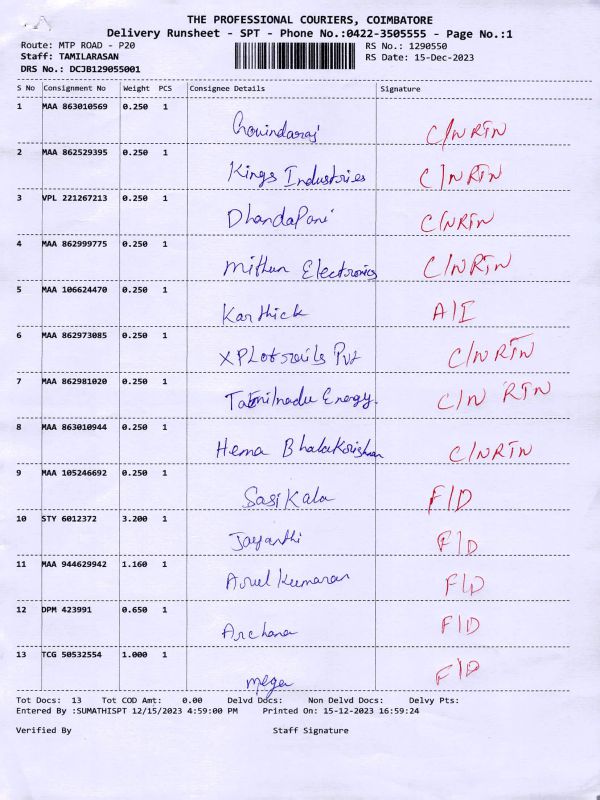 THE PROFESSIONAL COURIERS, COIMBATORE
Delivery Runsheet - SPT - Phone No.:0422-3505555 - Page No.:1
Route: MTP ROAD - P20 RS No.: 1290550
Staff: TAMILARASAN RS Date: 15-Dec-2023
DRS No.: DCJB129055001
S No Consignment No Weight PCS Consignee Details Signature
1 MAA 863010569 0.250 1 Govindaraj C/NRTN
2 MAA 862529395 0.250 1 Kings Industries C/NRTN
3 VPL 221267213 0.250 1 DhandaPani C/NRTN
4 MAA 862999775 0.250 1 Mithun Electronics C/NRTN
5 MAA 106624470 0.250 1 Karthick A/I
6 MAA 862973085 0.250 1 Pvt C/NRTN
7 MAA 862981020 0.250 1 Tamilnadu Energy. C/N RTN
8 MAA 863010944 0.250 1 Hema Bhalakrishnan C/NRTN
9 MAA 105246692 0.250 1 Sasikala F/D
10 STY 6012372 3.200 1 Jayanthi F/D
11 MAA 944629942 1.160 1 Arul Kumaran F/D
12 DPM 423991 0.650 1 Archana F/D
13 TCG 50532554 1.000 1 mega F/D
Tot Docs: 13 Tot COD Amt: 0.00 Delvd Docs: Non Delvd Docs: Delvy Pts:
Entered By :SUMATHISPT 12/15/2023 4:59:00 PM Printed On: 15-12-2023 16:59:24
Verified By Staff Signature